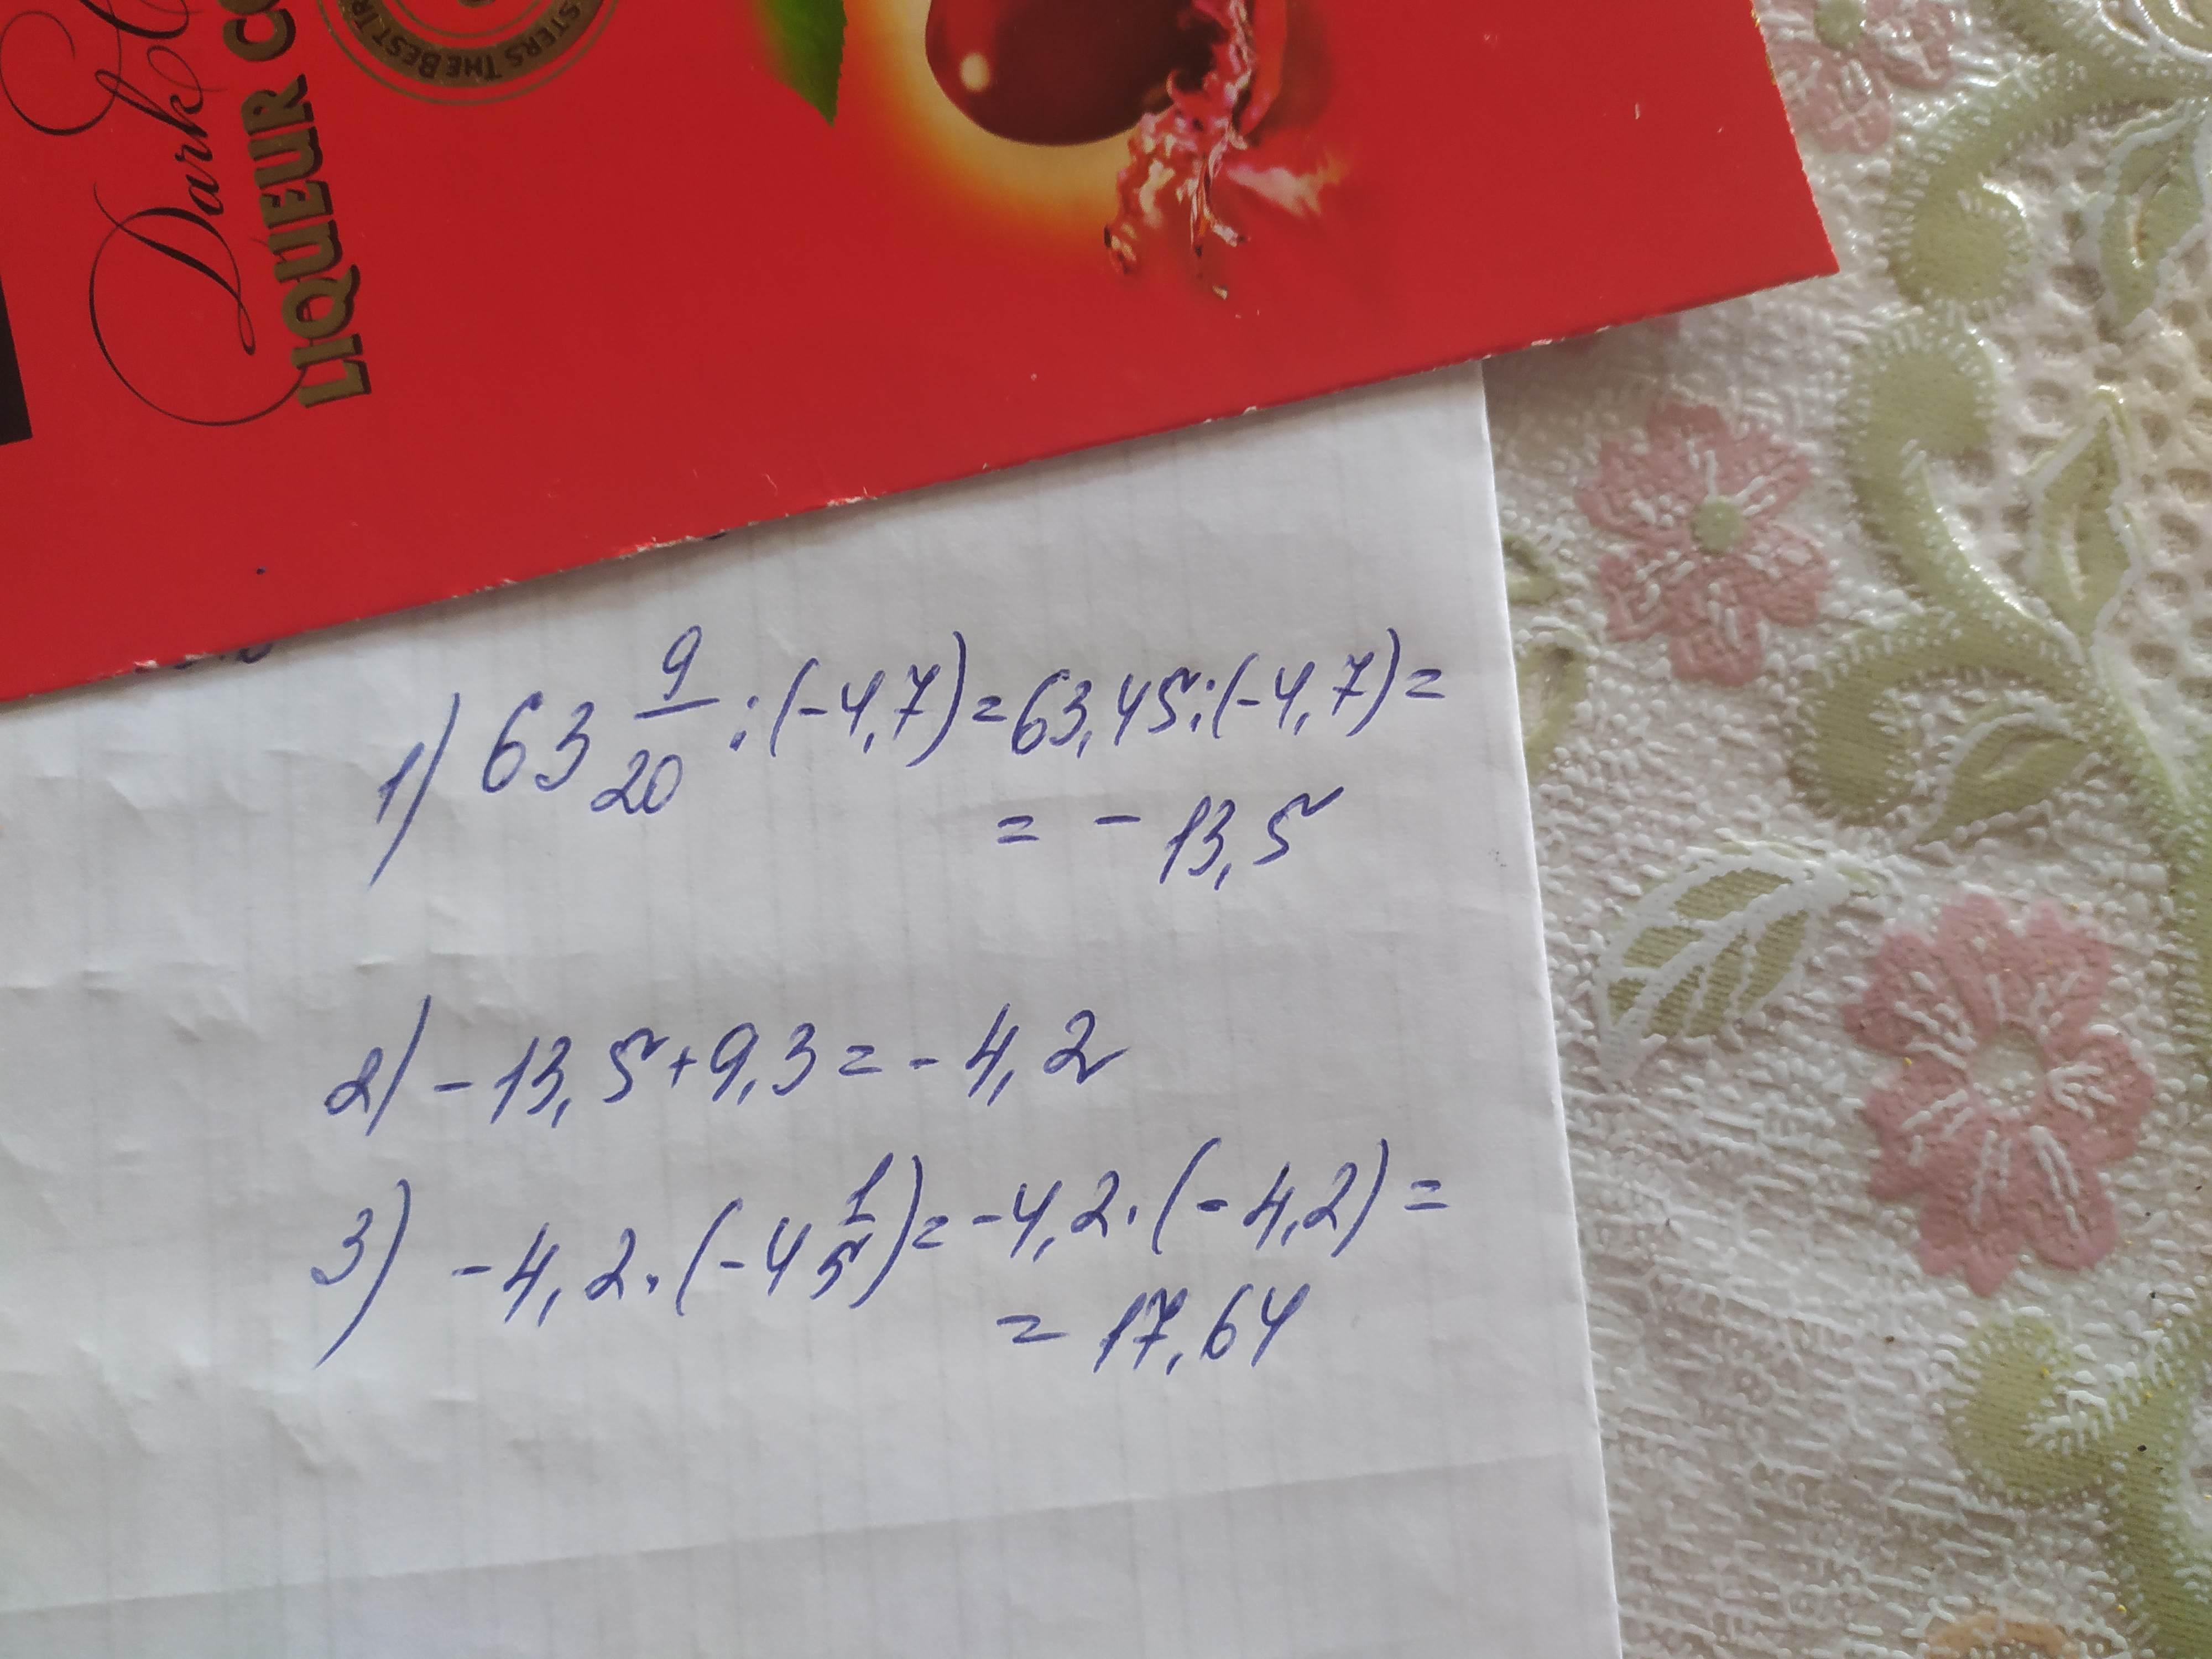 Dark
LIQUEUR
STERS THE BEST
1) 63 9/20 : (-4,7) = 63,45 : (-4,7) =
= - 13,5
2) - 13,5 + 9,3 = - 4,2
3) - 4,2 · (- 4 1/5) = - 4,2 · (- 4,2) =
= 17,64